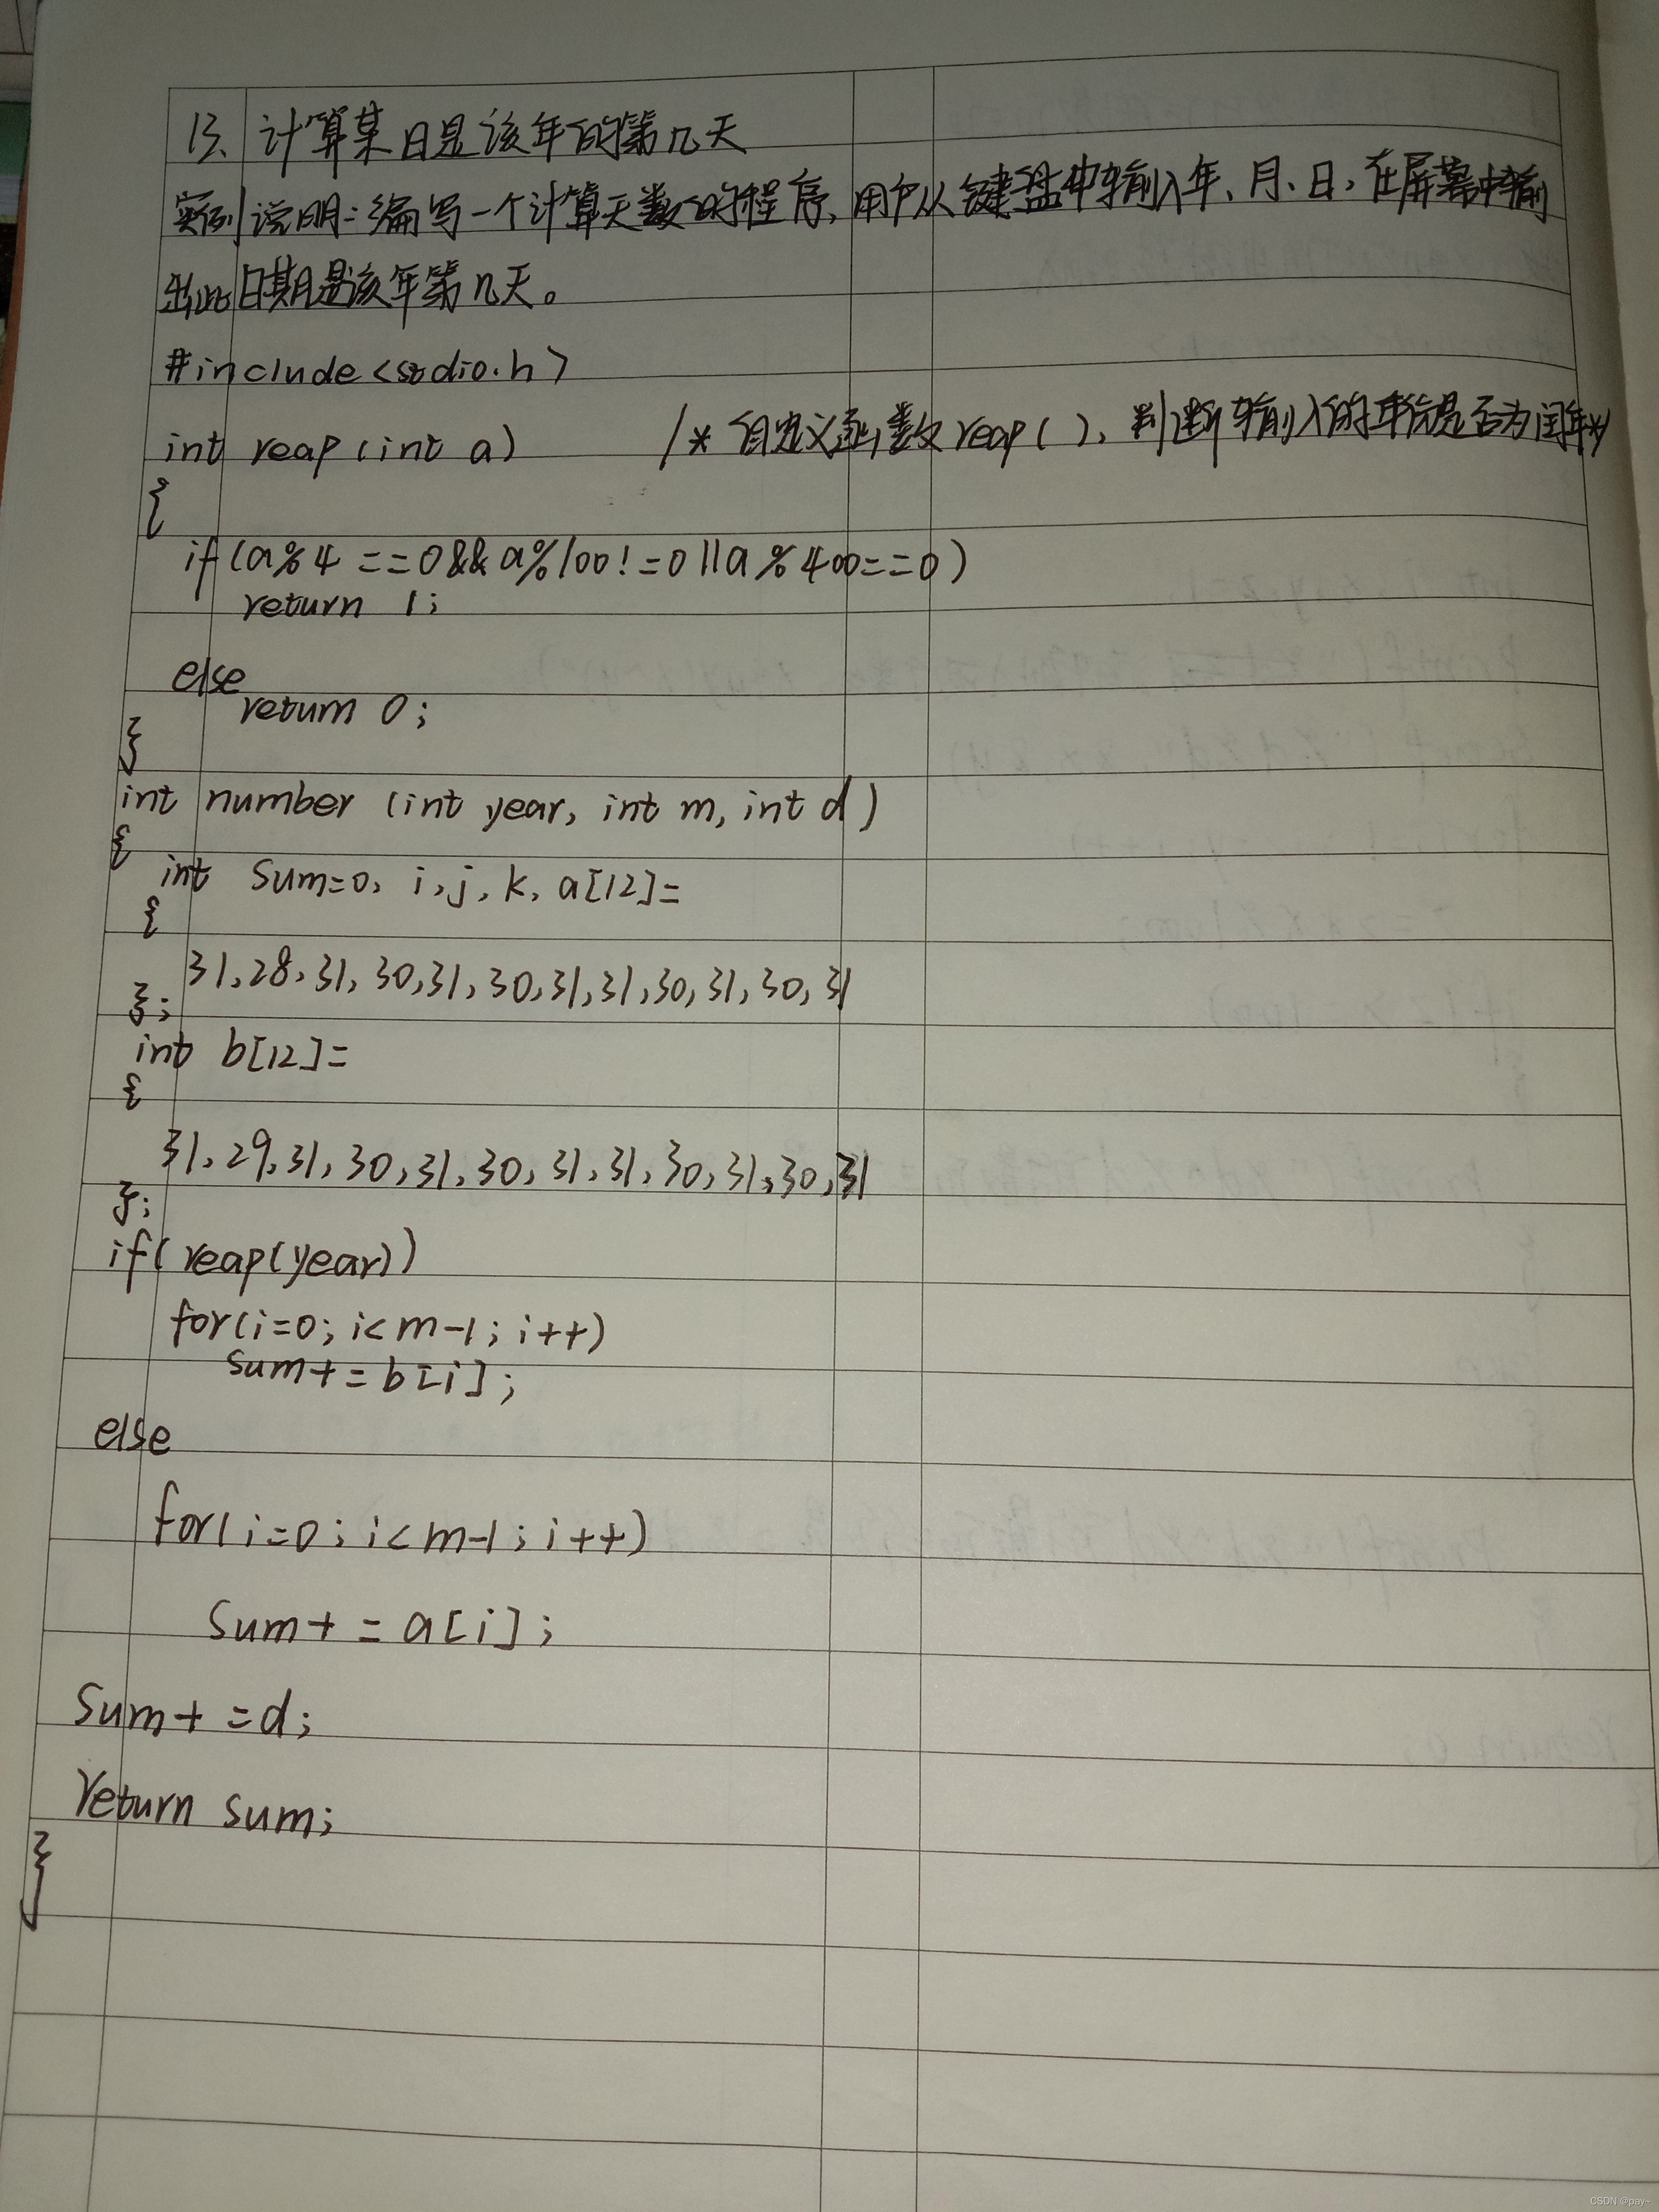 13、计算某日是该年的第几天
实例说明:编写一个计算天数的程序,用户从键盘中输入年、月、日,在屏幕中输
出此日期是该年第几天。
#include<stdio.h>
int reap(int a) /* 自定义函数reap()、判断输入的年份是否为闰年*/
{
if(a%4==0&&a%100!=0||a%400==0)
return 1;
else
return 0;
}
int number (int year, int m, int d)
{
int sum=0, i,j,k, a[12]=
{
31,28,31,30,31,30,31,31,30,31,30,31
};
int b[12]=
{
31,29,31,30,31,30,31,31,30,31,30,31
};
if(reap(year))
for(i=0;i<m-1;i++)
sum+=b[i];
else
for(i=0;i<m-1;i++)
sum+=a[i];
sum+=d;
return sum;
}
CSDN @pay~